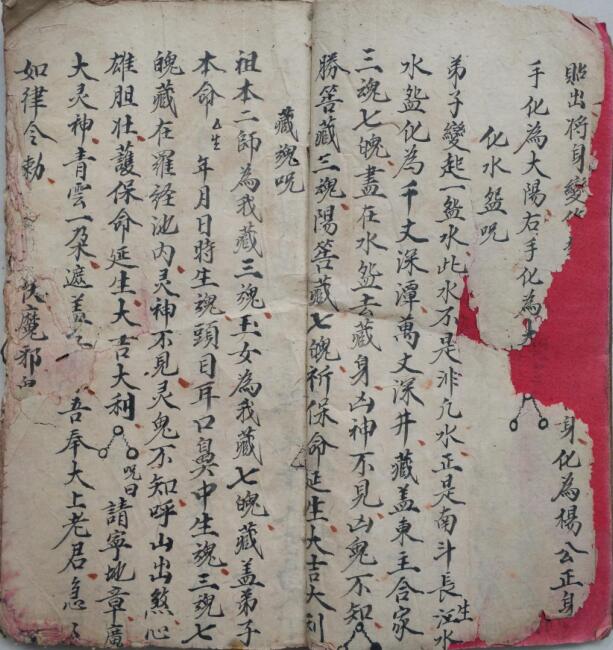 貼出将身變化
手化為大陽右手化為大
身化為楊公正身
化水盆咒
弟子變起一盆水此水不是非凡水正是南斗長生江水
水盆化為千丈深潭萬丈深井藏盖東主合家
三魂七魄盡在水盆去藏身凶神不見凶鬼不知
勝筶藏三魂陽筶藏七魄祈保命延生大吉大利
藏魂咒
祖本二師為我藏三魂玉女為我藏七魄藏盖弟子
本命厶生年月日時生魂頭目耳口鼻中生魂三魂七
魄藏在羅经池内灵神不見灵鬼不知呼山出煞心
雄胆壮護保命延生大吉大利咒曰請寧地章廣
大灵神青雲一朶遮盖吾奉大上老君急
如律令勅
魔邪